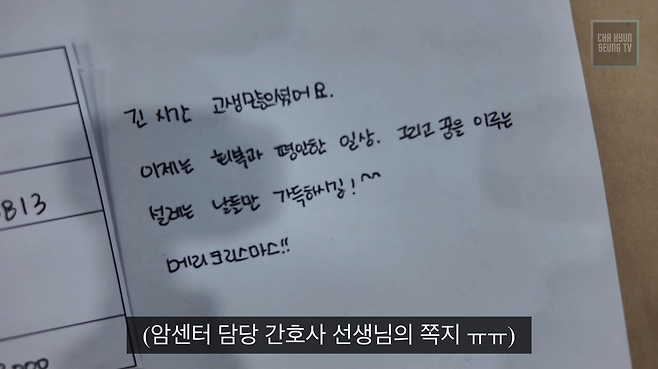 CHA HYUN
SEUNG TV
긴 시간 고생많으셨어요.
이제는 회복과 평안한 일상. 그리고 꿈을 이루는
설레는 날들만 가득하시길! ^^
메리크리스마스!!
813
(암센터 담당 간호사 선생님의 쪽지 ㅠㅠ)